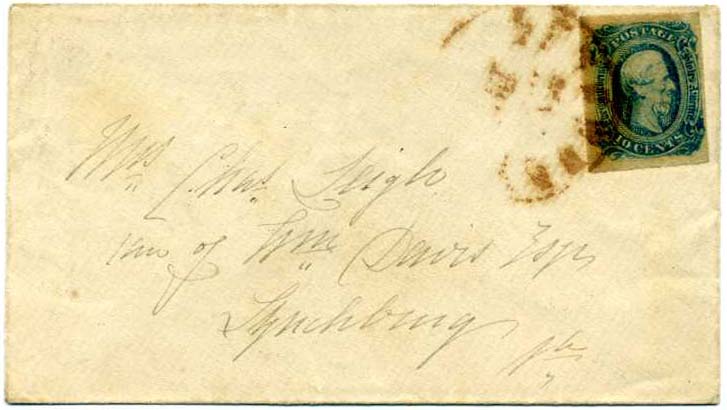 POSTAGE
10 CENTS
Mrs Chas Leigh
care of Wm Davis Esqr
Lynchburg
Va